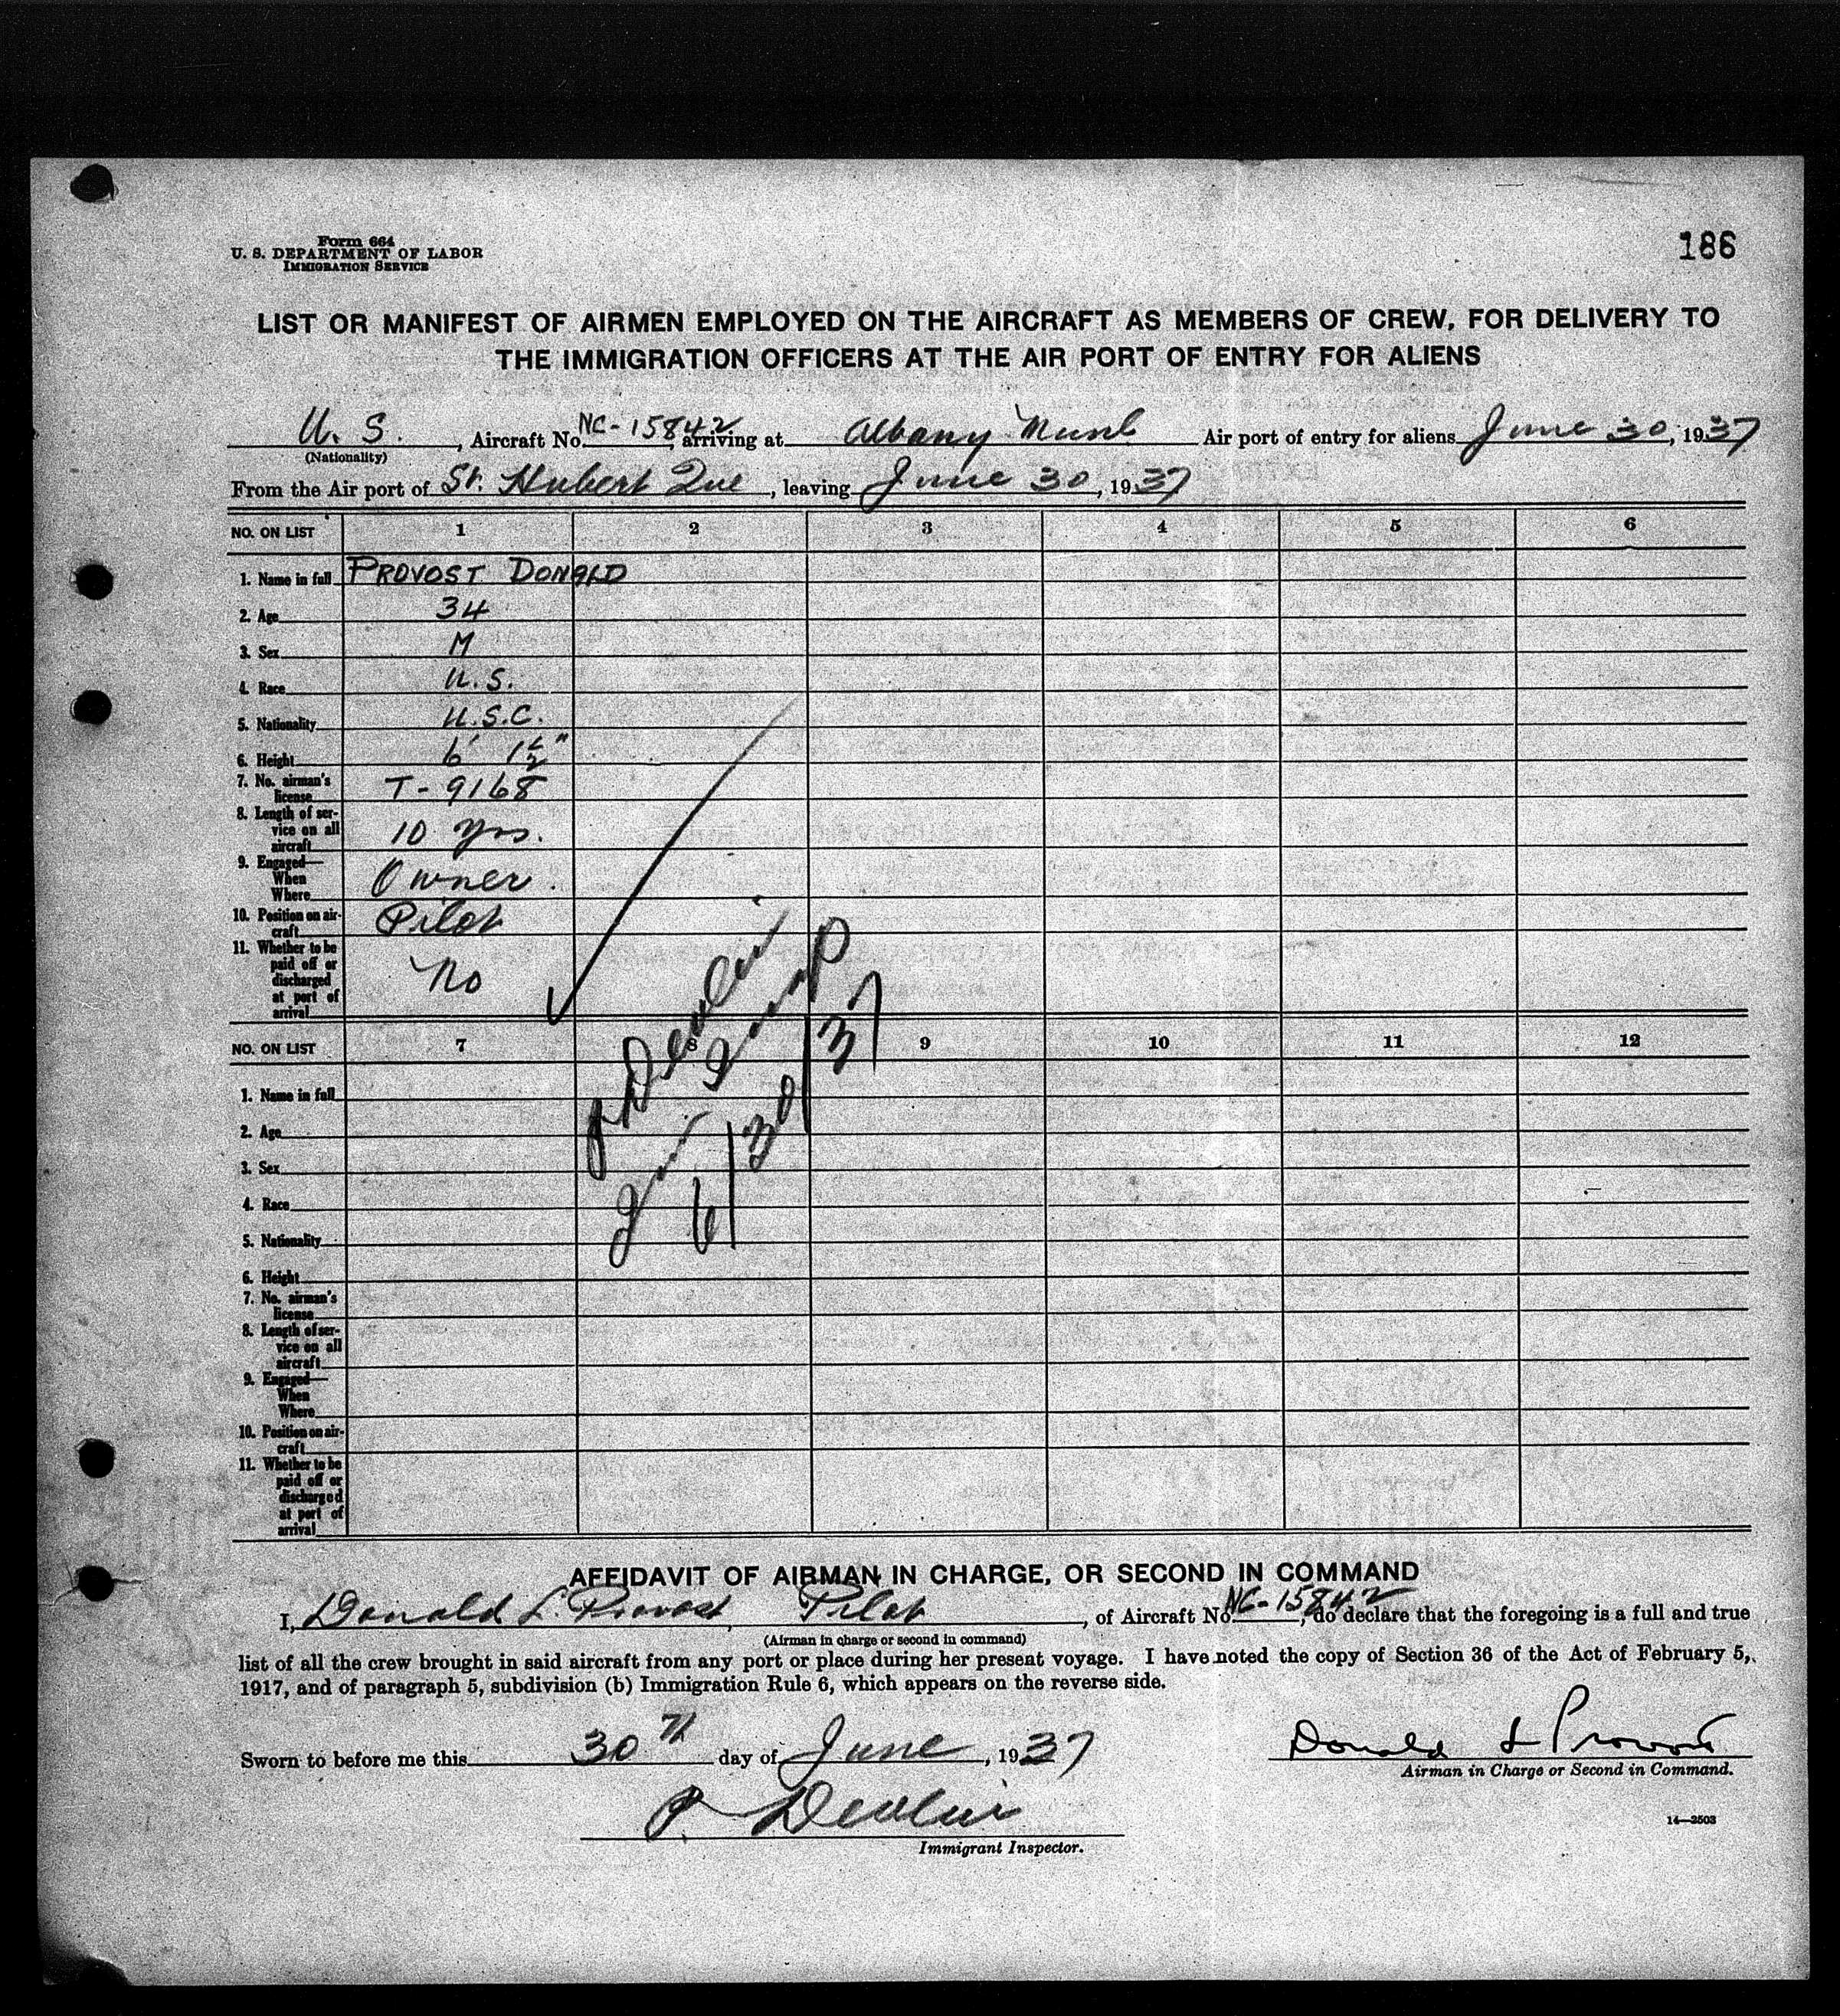 Form 664
U. S. DEPARTMENT OF LABOR
IMMIGRATION SERVICE
186
LIST OR MANIFEST OF AIRMEN EMPLOYED ON THE AIRCRAFT AS MEMBERS OF CREW, FOR DELIVERY TO
THE IMMIGRATION OFFICERS AT THE AIR PORT OF ENTRY FOR ALIENS
U. S., Aircraft No. NC-15842, arriving at Albany Air port of entry for aliens June 30, 1937
(Nationality)
From the Air port of St. Hubert Que, leaving June 30, 1937
NO. ON LIST 1 2 3 4 5 6
1. Name in full PROVOST DONALD
2. Age 34
3. Sex M
4. Race U.S.
5. Nationality U.S.C.
6. Height 6' 1½"
7. No. airman's
license T-9168
8. Length of ser-
vice on all
aircraft 10 yrs.
9. Engaged—
When
Where Owner.
10. Position on air-
craft Pilot
11. Whether to be
paid off or
discharged
at port of
arrival No
NO. ON LIST 7 8 9 10 11 12
P Devlin
6/30/37
1. Name in full
2. Age
3. Sex
4. Race
5. Nationality
6. Height
7. No. airman's
license
8. Length of ser-
vice on all
aircraft
9. Engaged—
When
Where
10. Position on air-
craft
11. Whether to be
paid off or
discharged
at port of
arrival
AFFIDAVIT OF AIRMAN IN CHARGE, OR SECOND IN COMMAND
I, Donald L. Provost, Pilot, of Aircraft No. NC-15842, do declare that the foregoing is a full and true
(Airman in charge or second in command)
list of all the crew brought in said aircraft from any port or place during her present voyage. I have noted the copy of Section 36 of the Act of February 5,
1917, and of paragraph 5, subdivision (b) Immigration Rule 6, which appears on the reverse side.
Sworn to before me this 30TH day of June, 1937
Donald L Provost
Airman in Charge or Second in Command.
P. Devlin
Immigrant Inspector.
14—2503